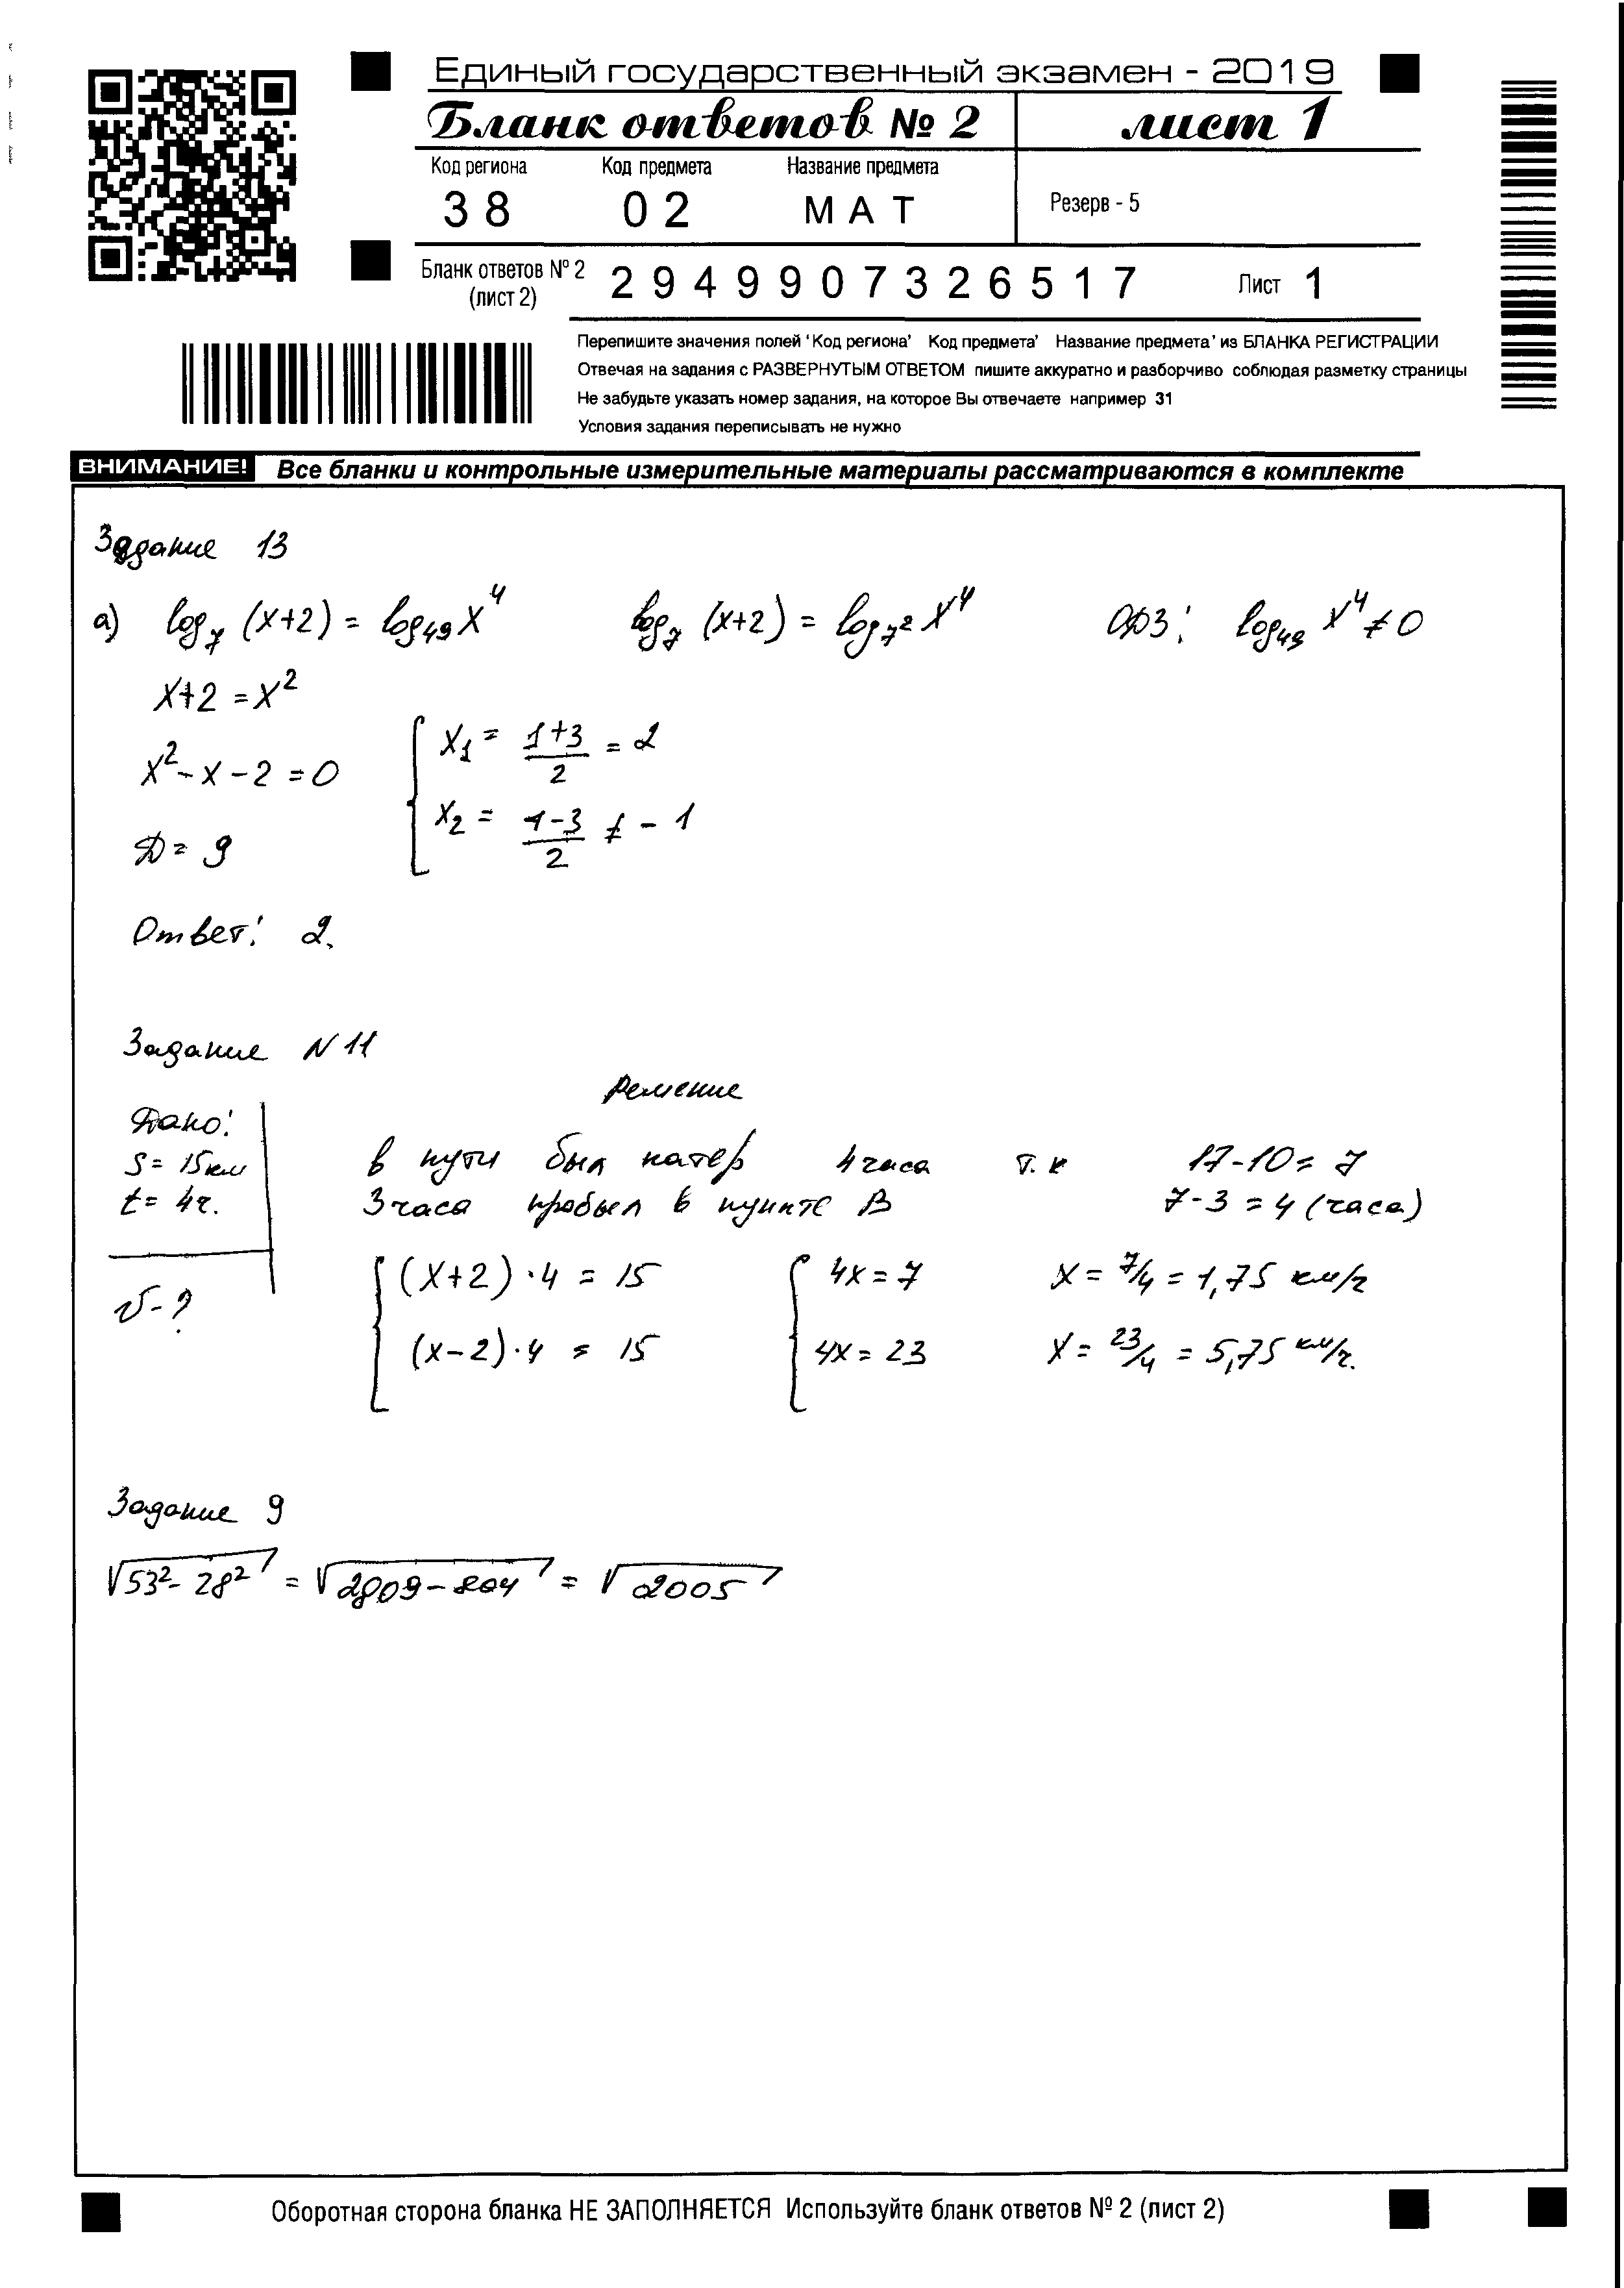 Единый государственный экзамен - 2019
Бланк ответов № 2 лист 1
Код региона Код предмета Название предмета
38 02 МАТ Резерв - 5
Бланк ответов № 2 (лист 2) 2949907326517 Лист 1
Перепишите значения полей 'Код региона' Код предмета' Название предмета' из БЛАНКА РЕГИСТРАЦИИ
Отвечая на задания с РАЗВЕРНУТЫМ ОТВЕТОМ пишите аккуратно и разборчиво соблюдая разметку страницы
Не забудьте указать номер задания, на которое Вы отвечаете например 31
Условия задания переписывать не нужно
ВНИМАНИЕ! Все бланки и контрольные измерительные материалы рассматриваются в комплекте
Задание 13
а) log₇ (x+2) = log₄₉ x⁴ log₇ (x+2) = log₇² x⁴ ОДЗ: log₄₉ x⁴ ≠ 0
x+2 = x²
x² - x - 2 = 0
x₁ = (1+3)/2 = 2
x₂ = (1-3)/2 ≠ -1
Д = 9
Ответ: 2.
Задание N 11
Решение
Дано:
S = 15 км
t = 4 ч.
v - ?
в пути был катер 4 часа т. к 17-10 = 7
3 часа пробыл в пункте В 7-3 = 4 (часа)
(x+2)·4 = 15 4x = 7 x = 7/4 = 1,75 км/ч
(x-2)·4 = 15 4x = 23 x = 23/4 = 5,75 км/ч.
Задание 9
√53² - 28² = √2809 - 804 = √2005
Оборотная сторона бланка НЕ ЗАПОЛНЯЕТСЯ Используйте бланк ответов № 2 (лист 2)